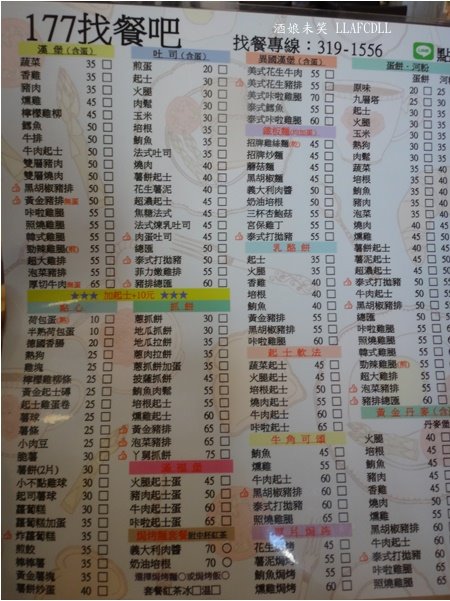 酒娘未笑 LLAFCDLL
177找餐吧
找餐專線：319-1556
漢堡(含蛋)
蔬菜 35
香雞 35
豬肉 35
燻雞 35
檸檬雞柳 35
鱈魚 50
牛排 50
牛肉起士 50
雙層豬肉 50
雙層燒肉 50
黑胡椒豬排 50
黃金豬排 55
咔啦雞腿 55
照燒雞腿 55
韓式雞腿 55
勁辣雞腿 55
超大雞排 55
泡菜豬排 55
厚切牛肉 65
★★★ 加起士+10元 ★★★
點心
荷包蛋 10
半熟荷包蛋 10
德國香腸 20
熱狗 25
雞塊 30
檸檬雞柳條 30
黃金起士磚 30
起士雞蛋卷 30
薯球 30
薯條 30
小肉豆 30
脆薯 30
薯餅(2片) 30
小不點雞球 30
起司薯球 30
蘿蔔糕 30
蘿蔔糕加蛋 40
炸蘿蔔糕 35
煎餃 30
棒棒薯 35
黃金薯塊 35
薯球加蛋 35
吐司(含蛋)
煎蛋 20
起士 30
火腿 30
肉鬆 30
玉米 30
培根 30
鮪魚 35
法式吐司 35
燒肉 40
薯餅起士 40
花生薯泥 40
超濃起士 40
焦糖法式 40
法式煉乳吐司 40
肉蛋吐司 45
總匯 50
泰式打拋豬 50
菲力嫩雞 50
招牌豬排 50
抓餅
蔥抓餅 30
地瓜抓餅 35
地瓜拉餅 35
蔥肉拉餅 35
蔥抓餅加蛋 35
披薩抓餅 45
鮪魚肉鬆 50
培根起士 50
燻雞起士 60
黃金豬排 65
泡菜豬排 65
丫舅抓餅 65
滿福堡
火腿起士蛋 40
豬肉起士蛋 50
燻雞起士蛋 50
牛肉起士蛋 60
咔啦起士蛋 60
焗烤麵套餐 附中杯紅茶
義大利肉醬 70
奶油培根 70
選擇焗烤麵○或焗烤飯○
套餐紅茶冰□溫□
異國漢堡(含蛋)
美式花生牛肉 55
美式花生豬排 55
美式咔啦雞腿 60
泰式鱈魚 55
泰式咔啦雞腿 60
鐵板麵(均加蛋)
招牌雞絲麵 45
招牌炒麵 50
蘑菇麵 50
黑胡椒麵 50
義大利肉醬 50
奶油培根 55
三杯杏鮑菇 55
宮保雞丁 55
泰式打拋豬 55
乳酪餅
起士 35
火腿 40
培根 40
玉米 40
肉鬆 40
鮪魚 40
黃金豬排 55
咔啦雞腿 60
起士軟法
蔬菜起士 45
火腿起士 50
培根起士 50
燒肉起士 50
牛肉起士 60
咔啦起士 60
牛角可頌
鮪魚 45
燻雞 45
牛肉 60
黑胡椒豬排 60
咔啦雞腿 60
厚片焗烤
花生焗烤 45
薯泥焗烤 45
鮪魚焗烤 45
燻雞焗烤 45
蛋餅．河粉
蛋餅 河粉
原味 20 25
九層塔 25 30
起士
火腿
玉米
熱狗
肉鬆
鮪魚
泡菜
豬肉
燒肉
燻雞
薯餅起士
薯泥起士
超濃起士
泰式打拋豬
牛肉起士
總匯
咔啦雞腿
照燒雞腿
韓式雞腿
勁辣雞腿
超大雞排
泡菜豬排
黃金豬排
黃金丹麥(含蛋)
丹麥堡
火腿 40
起士 40
豬肉 45
香雞 45
鮪魚 45
燻雞 45
燒肉
牛肉
黑胡椒豬排
泰式打拋豬
咔啦雞腿
照燒雞腿